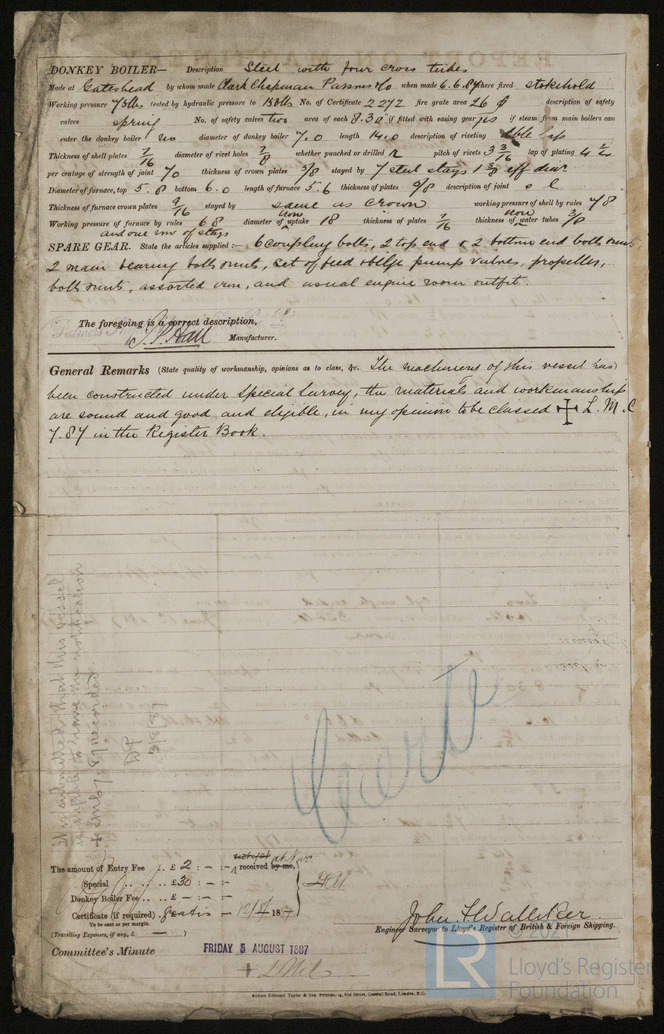 DONKEY BOILER— Description Steel with four cross tubes
Made at Gateshead by whom made Clark Chapman Parsons & Co when made 6.6.87 where fixed stokehold
Working pressure 75 lbs tested by hydraulic pressure to 150 lbs No. of Certificate 2272 fire grate area 26 description of safety
valves spring No. of safety valves two area of each 8.30 if fitted with easing gear yes if steam from main boilers can
enter the donkey boiler no diameter of donkey boiler 7.0 length 14.0 description of riveting dble lap
Thickness of shell plates 7/16 diameter of rivet holes 7/8 whether punched or drilled pitch of rivets 3 3/16 lap of plating 4 1/2
per centage of strength of joint 70 thickness of crown plates 5/8 stayed by 7 steel stays 1 3/8 eff diar
Diameter of furnace, top 5.8 bottom 6.0 length of furnace 5.6 thickness of plates 9/8 description of joint s l
Thickness of furnace crown plates 9/16 stayed by same as crown working pressure of shell by rules 78
Working pressure of furnace by rules 68 diameter of iron uptake 18 thickness of plates 7/16 thickness of iron water tubes 3/8
SPARE GEAR. State the articles supplied:— 6 coupling bolts, 2 top end & 2 bottom end bolts & nuts
2 main bearing bolts & nuts, set of feed & bilge pump valves, propeller,
bolts & nuts, assorted iron, and usual engine room outfit.
The foregoing is a correct description,
Manufacturer.
General Remarks (State quality of workmanship, opinions as to class, &c. The machinery of this vessel has
been constructed under Special Survey, the materials and workmanship
are sound and good and eligible, in my opinion to be classed + L.M.C
7.87 in the Register Book.
It is submitted that this vessel
is eligible to have the notification
+ LMC 7.87 recorded
3/8/87
The amount of Entry Fee .. £ 2 : - : - received by me,
Special .. .. £ 30 : - : -
Donkey Boiler Fee .. £ - : - : -
Certificate (if required) gratis
To be sent as per margin.
(Travelling Expenses, if any, £ )
John F Walliker
Engineer Surveyor to Lloyd's Register of British & Foreign Shipping.
Committee's Minute FRIDAY 5 AUGUST 1887
+ LMC
© 2021
LR
Lloyd's Register
Foundation